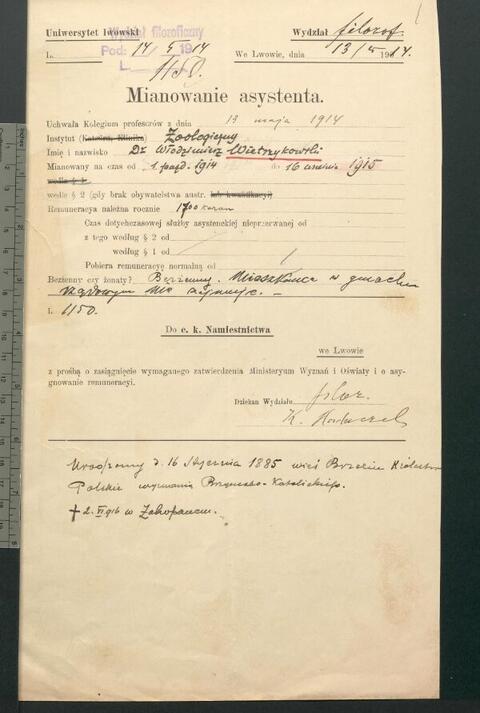 Uniwersytet lwowski
Wydział filozof.
Wydział filozoficzny
Pod: 14/5 1914
L.
We Lwowie, dnia 13/5 1914.
1150.
Mianowanie asystenta.
Uchwała Kolegium profesorów z dnia 13 maja 1914
Instytut (Katedra, Klinika) Zoologiczny
Imię i nazwisko Dr Włodzimierz Wietrzykowski
Mianowany na czas od 1. paźd. 1914 do 1915
wedle § 1.
wedle § 2 (gdy brak obywatelstwa austr. lub kwalifikacyi)
Remuneracya należna rocznie 1700 koron
Czas dotychczasowej służby asystenckiej nieprzerwanej od
z tego według § 2 od
według § 1 od
Pobiera remuneracyę normalną od
Bezżenny czy żonaty? Bezżenny. Mieszkania w gmachu
rządowym nie zajmuje. –
L. 1150.
Do c. k. Namiestnictwa
we Lwowie
z prośbą o zasiągnięcie wymaganego zatwierdzenia Ministeryum Wyznań i Oświaty i o asy-
gnowanie remuneracyi.
Dziekan Wydziału filoz.
K.
Urodzony d. 16 stycznia 1885 wieś Królestwo
Polskie wyznania Rzymsko-Katolickiego.
† 2. VI 916 w Zakopanem.